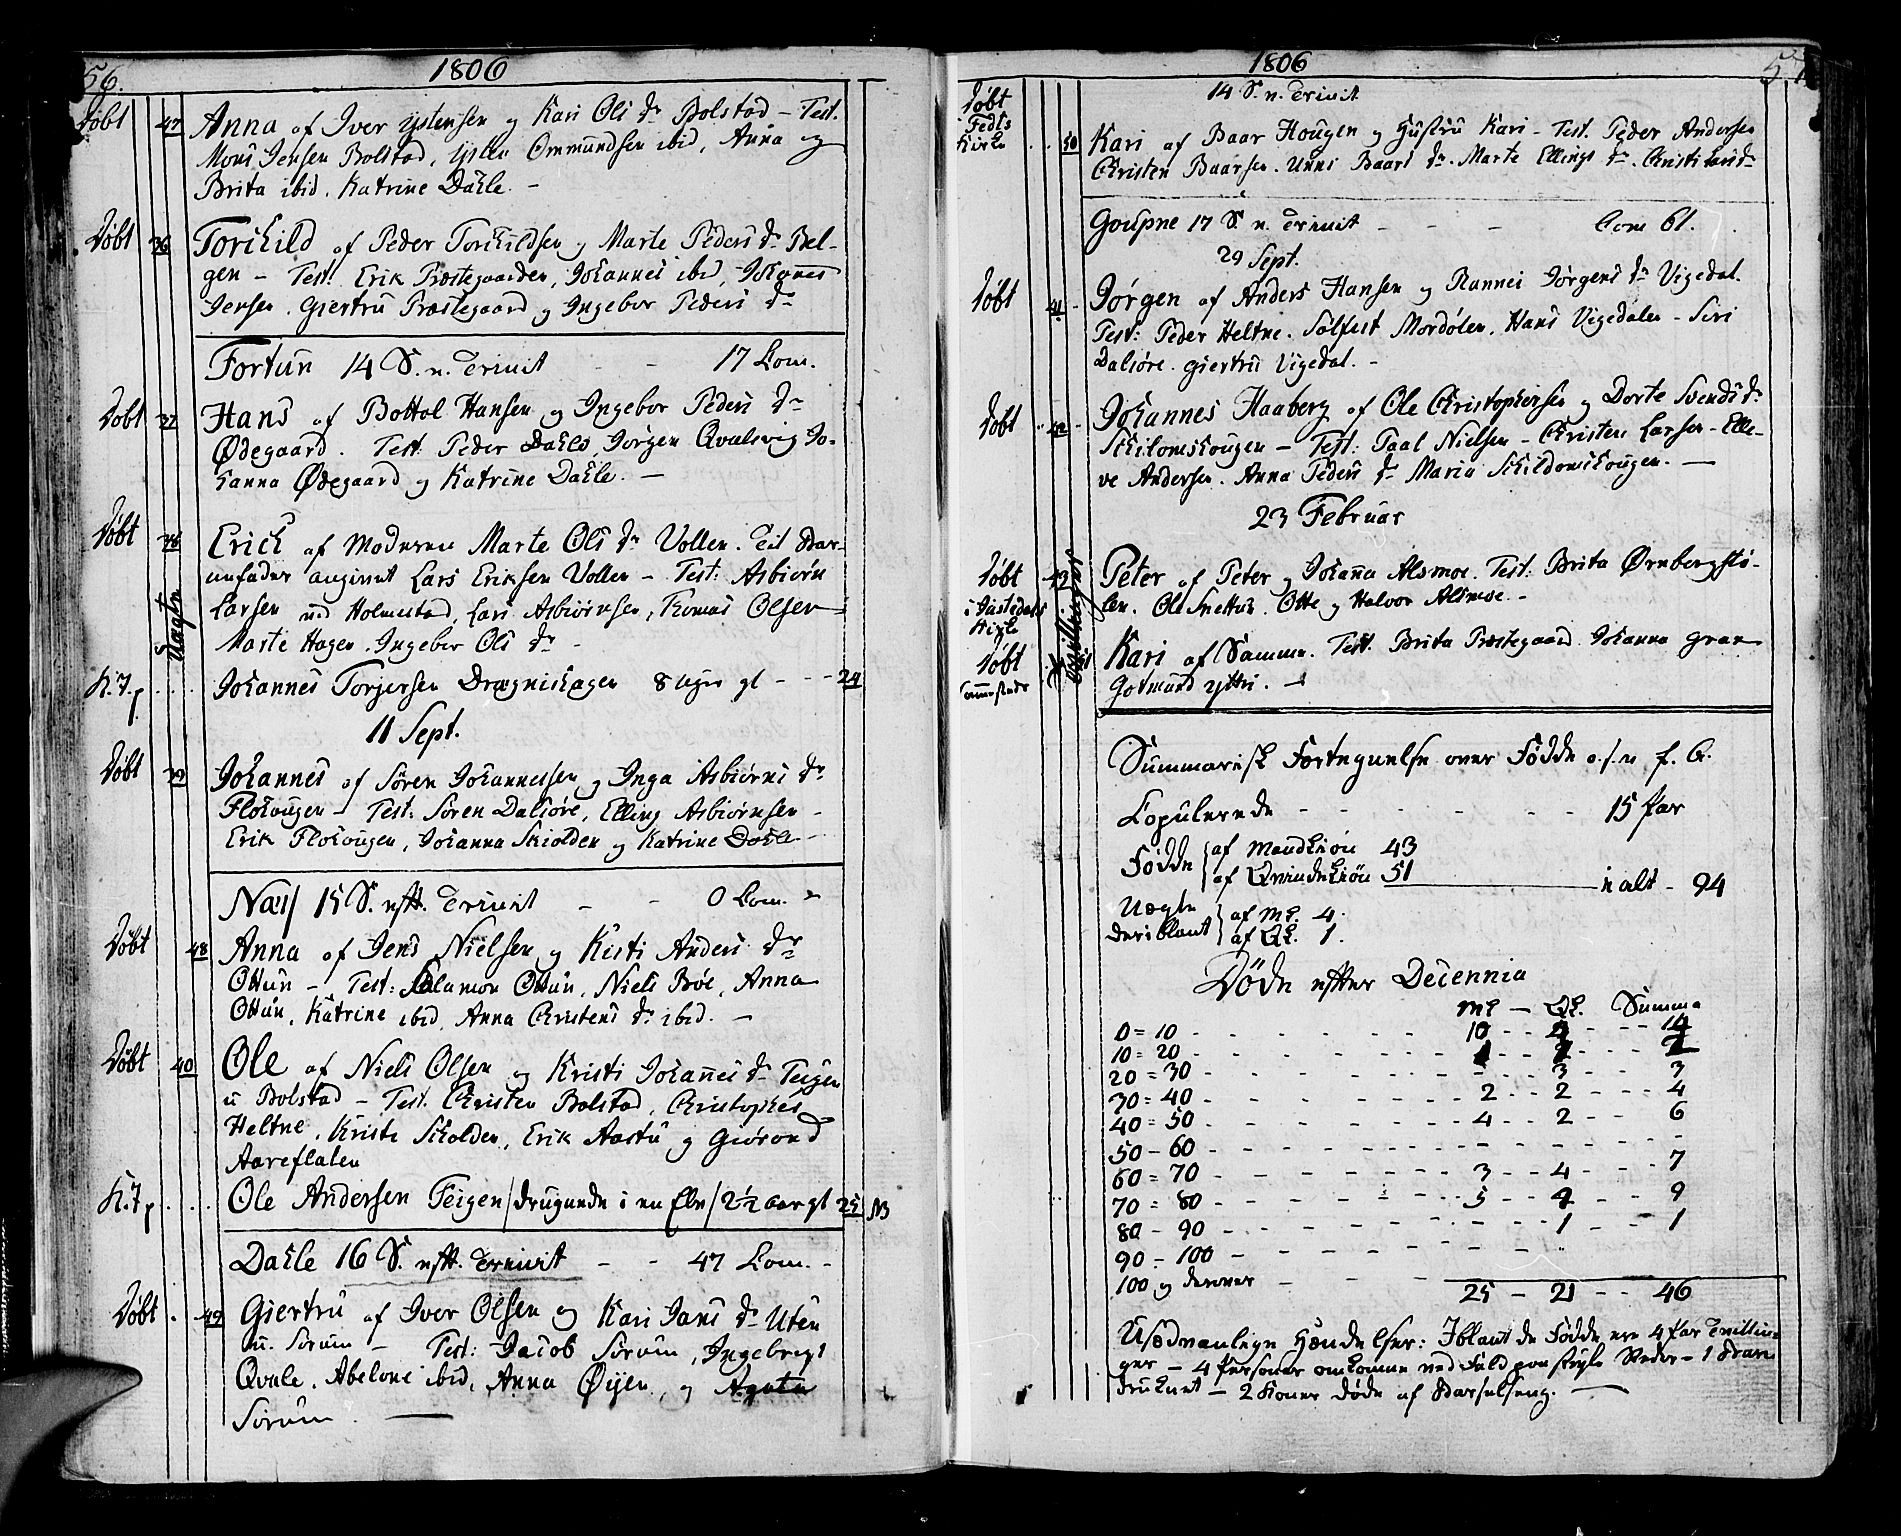 56.
1806
Döbt 47 Anna af Iver Ystensen og Kari Ols Dr Bolstad - Test.
Mons Jensen Bolstad, Ysten Ommundsen ibid, Anna og
Brita ibid. Katrine Dahle. -
Döbt 36 Torchild af Peder Torchildsen og Marte Peders Dr Bel-
gen - Test. Erik Præstegaarden, Johannes ibid, Johannes
Jensen. Giertru Præstegaard og Ingebor Peders Dr
Fortun 14 S. n. Trinit - - 17 Com.
Döbt 37 Hans af Bottol Hansen og Ingebor Peders Dr
Ødegaard. Test. Peder Dahle, Jørgen Qvalevig Jo-
hanna Ødegaard og Katrine Dahle. -
Döbt 38 Erich af Moderen Marte Ols Dr Vollen. Til Bar-
nefader angivet Lars Eriksen Vollen - Test: Asbiørn
Uægte
Larsen ved Holmestad, Lars Asbiørnsen, Thomas Olsen
Marte Hagen, Ingebor Ols Dr -
K. J. p. Johannes Torgersen Drægnishagen 8 uger gl - - - 24
11 Sept.
Döbt 39 Johannes af Sören Johannessen og Inga Asbiørns Dr
Flohougen - Test: Sören Dalsöre, Elling Asbiørnsen -
Erik Flohougen, Johanna Skiolden og Katrine Dahle -
Næs 15 S. eft. Trinit - - 0 Com.
Döbt 48 Anna af Jens Nielsen og Kisti Anders Dr
Ottun - Test: Salamon Ottun, Niels Böe, Anna
Ottun, Katrine ibid, Anna Christens Dr ibid. -
Döbt 40 Ole af Niels Olsen og Kristi Johannes Dr Teigen
u. Bolstad - Test. Christen Bolstad, Christopher
Heltne, Kristi Skolden, Erik Aastu og Giörond
Aareflaten
K. J. p. Ole Andersen Teigen / druknede i en Elv / 2 1/2 aar gl 25 NB
Dahle 16 S. eft. Trinit - - 47 Com. -
Döbt 49 Giertru af Iver Olsen og Kari Jans Dr Uten
u. Sorum - Test: Jacob Sorum, Ingebrigt
Qvale, Abelone ibid, Anna Øyen, og Agate
Sorum.
1806
57
14 S. n. Trinit
Döbt i Fedts Kirke 50 Kari af Baar Hougen og Hustru Kari - Test. Peder Andersen
Christen Baarsen. Unni Baars Dr. Marte Ellings Dr.
Goupne 17 S. n. Trinit - - - Com 61.
29 Sept.
Döbt 41 Jörgen af Anders Hansen og Rannei Jörgens Dr Vigedal.
Test: Peder Heltne. Solfest Mordölen, Hans Vigedalen - Siri
Dalsöre. Giertru Vigedal. -
Döbt 42 Johannes Haaberg af Ole Christophersen og Dorte Svends Dr
Skildomshougen - Test: Paal Nielsen - Christen Larsen - Elle-
ve Andersen. Anna Peders Dr Maria Skildomshougen. -
23 Februar
Döbt i Justedals Kirke 43 Peter af Peter og Johanna Alsmoe. Test: Brita Ørnbergstö-
len. Ole Snettun. Otte og Halvor Alsmoe. -
Tvillinger
Döbt sammesteds 51 Kari af Samme. Test. Brita Præstegaard Johanna Gran
Gotmund Yttri. -
Summarisk Fortegnelse over Födde o.s.v. f. A.
Copulerede - - - - - - 15 Par
Födde af Mandkiön 43
af Qvindekiön 51 i alt - 94
Uægte deriblant af Mk. 4.
af Qk. 1.
Döde efter Decennia
Mk - Qk. Summa
0 = 10 - - - 10 - - 4 - - 14
10 = 20 - - -
20 = 30 - - - 3 - - 3
30 = 40 - - - 2 - - 2 - - 4
40 = 50 - - - 4 - - 2 - - 6
50 - 60 - - -
60 = 70 - - - 3 - - 4 - - 7
70 = 80 - - - 5 - - 4 - - 9
80 - 90 - - - 1 - - 1
90 - 100 - - -
100 og derover - - -
25 - 21 - - 46
Usædvanlige Hændelser: Iblant de Födde ere 4 Par Tvillin-
ger - 4 Personer omkomne ved Fald paa steile Steder - 1 Barn
druknet - 2 Koner döde af Barselseng. -